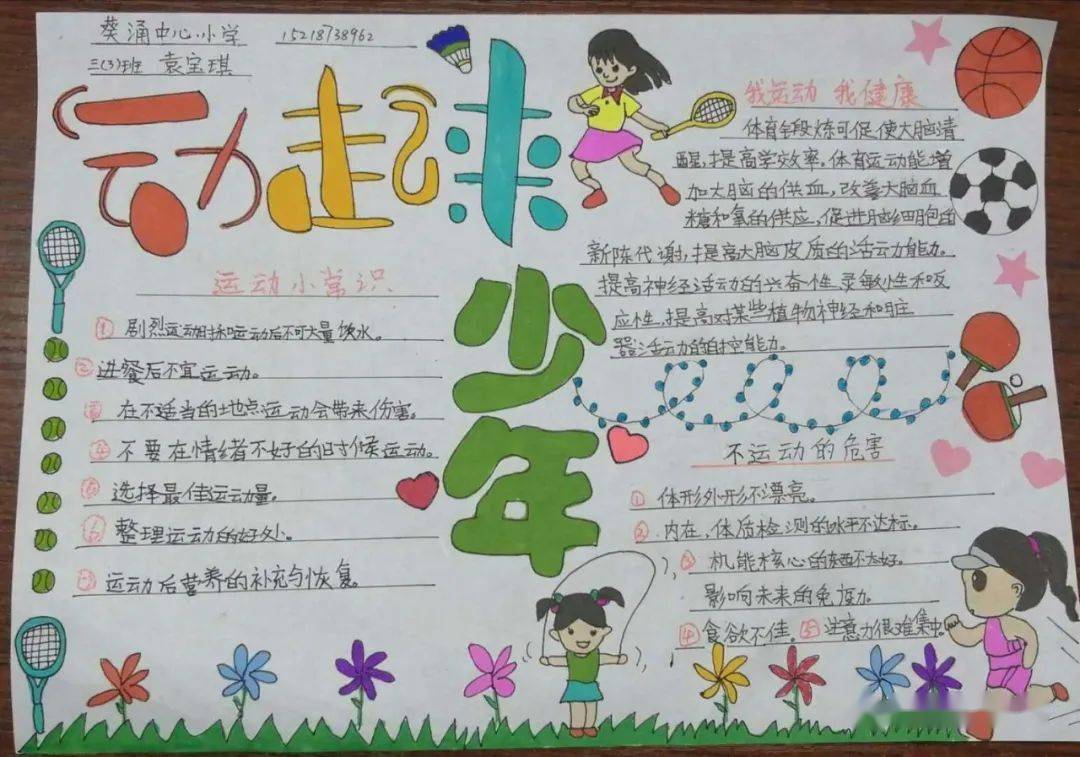 葵涌中心小学 15218738962
三(3)班 袁宝琪
运动起来
少年
运动小常识
① 剧烈运动时和运动后不可大量饮水。
② 进餐后不宜运动。
③ 在不适当的地点运动会带来伤害。
④ 不要在情绪不好的时候运动。
⑤ 选择最佳运动量。
⑥ 整理运动的好处。
⑦ 运动后营养的补充与恢复。
我运动 我健康
体育锻炼可促使大脑清
醒,提高学效率,体育运动能增
加大脑的供血,改善大脑血
糖和氧的供应,促进脑细胞的
新陈代谢,提高大脑皮质的活动能力。
提高神经活动的兴奋性、灵敏性和反
应性,提高对某些植物神经和脏
器活动的自控能力。
不运动的危害
① 体形外形不漂亮。
② 内在,体质检测的水平不达标。
③ 机能核心的东西不太好。
影响未来的免疫力。
④ 食欲不佳。⑤ 注意力很难集中。